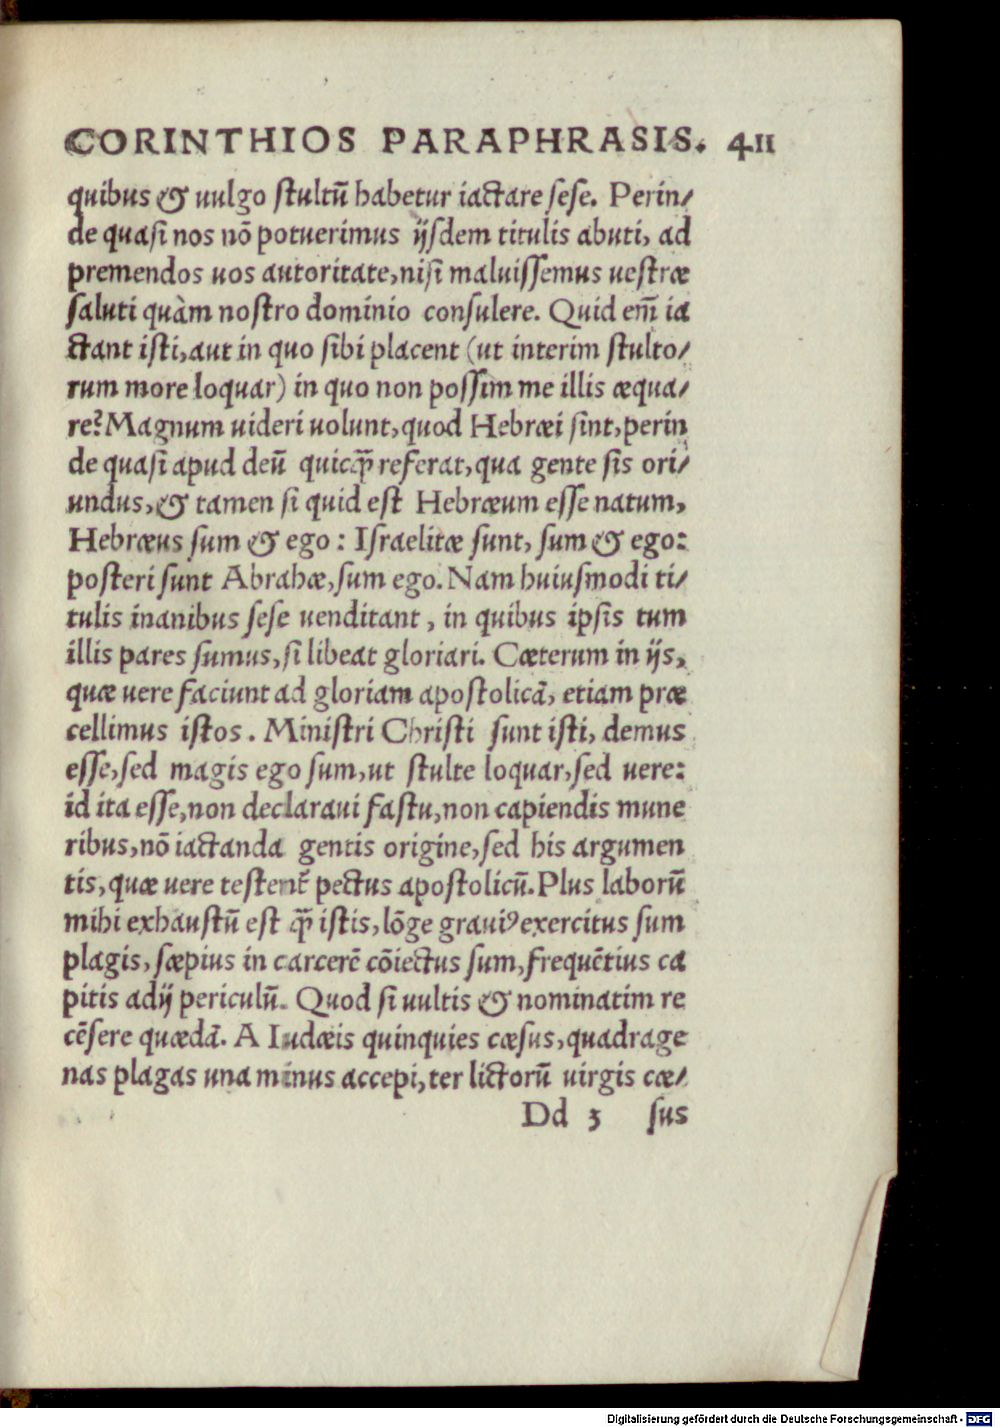 CORINTHIOS PARAPHRASIS. 411
quibus & uulgo stultũ habetur iactare sese. Perin/
de quasi nos nõ potuerimus ijsdem titulis abuti, ad
premendos uos autoritate, nisi maluissemus uestræ
saluti quàm nostro dominio consulere. Quid em̃ ia
ctant isti, aut in quo sibi placent (ut interim stulto/
rum more loquar) in quo non possim me illis æqua/
re? Magnum uideri uolunt, quod Hebræi sint, perin
de quasi apud deũ quicq̃ referat, qua gente sis ori/
undus, & tamen si quid est Hebræum esse natum,
Hebræus sum & ego: Israelitæ sunt, sum & ego:
posteri sunt Abrahæ, sum ego. Nam huiusmodi ti/
tulis inanibus sese uenditant, in quibus ipsis tum
illis pares sumus, si libeat gloriari. Cæterum in ijs,
quæ uere faciunt ad gloriam apostolicã, etiam præ
cellimus istos. Ministri Christi sunt isti, demus
esse, sed magis ego sum, ut stulte loquar, sed uere:
id ita esse, non declaraui fastu, non capiendis mune
ribus, nõ iactanda gentis origine, sed his argumen
tis, quæ uere testent᷑ pectus apostolicũ. Plus laborũ
mihi exhaustũ est q̃ istis, lõge grauiꝰ exercitus sum
plagis, sæpius in carcerẽ cõiectus sum, frequẽtius ca
pitis adij periculũ. Quod si uultis & nominatim re
cẽsere quædã. A Iudæis quinquies cæsus, quadrage
nas plagas una minus accepi, ter lictorũ uirgis cæ/
Dd 3 sus
Digitalisierung gefördert durch die Deutsche Forschungsgemeinschaft - DFG